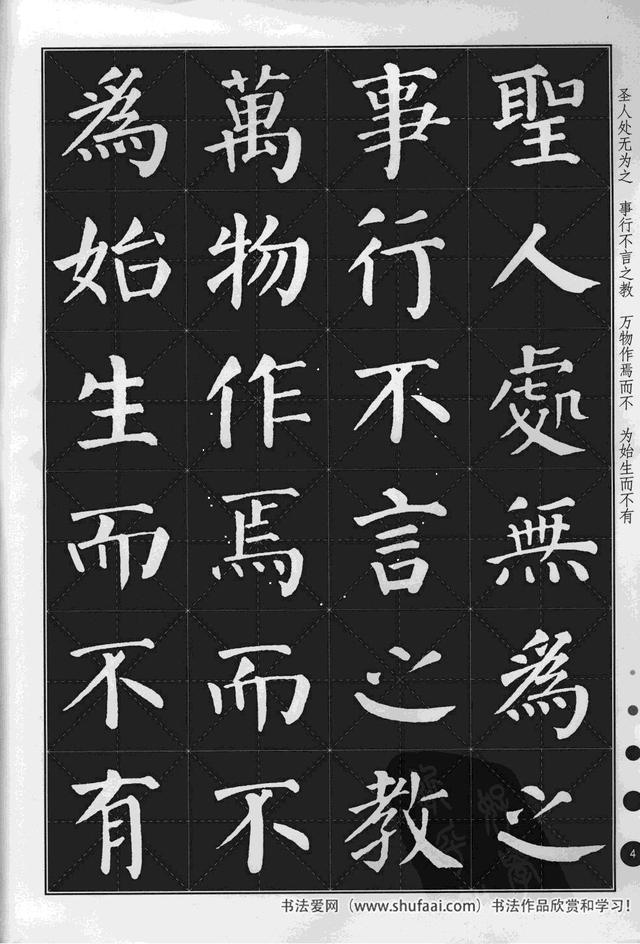 聖人處無爲之
事行不言之教
萬物作焉而不
爲始生而不有
圣人处无为之 事行不言之教 万物作焉而不 为始生而不有
4
书法爱网（www.shufaai.com）书法作品欣赏和学习！